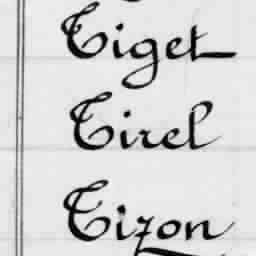 Tiget
Tirel
Tizon